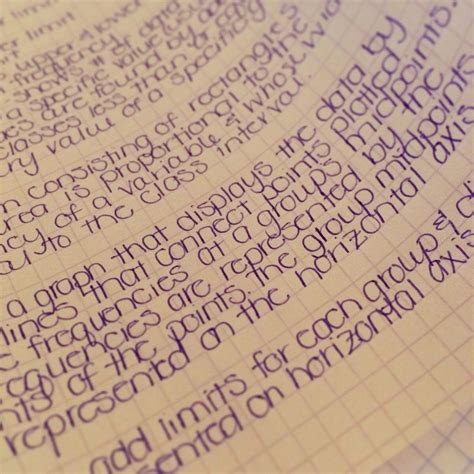 er limit
r limit
upper & lower
frequency
shows # of data
a specific value
es are found by
classes less than or
ery value of a specific
n consisting of rectangles
area is proportional to the
ncy of a variable & whose wid
al to the class interval.
a graph that displays the data by
lines that connect points plotted
s frequencies at a groups midpoints.
requencies are represented by the
nts of the points, the group midpoints
represented on the horizontal axis
add limits for each group &
sented on horizontal axis